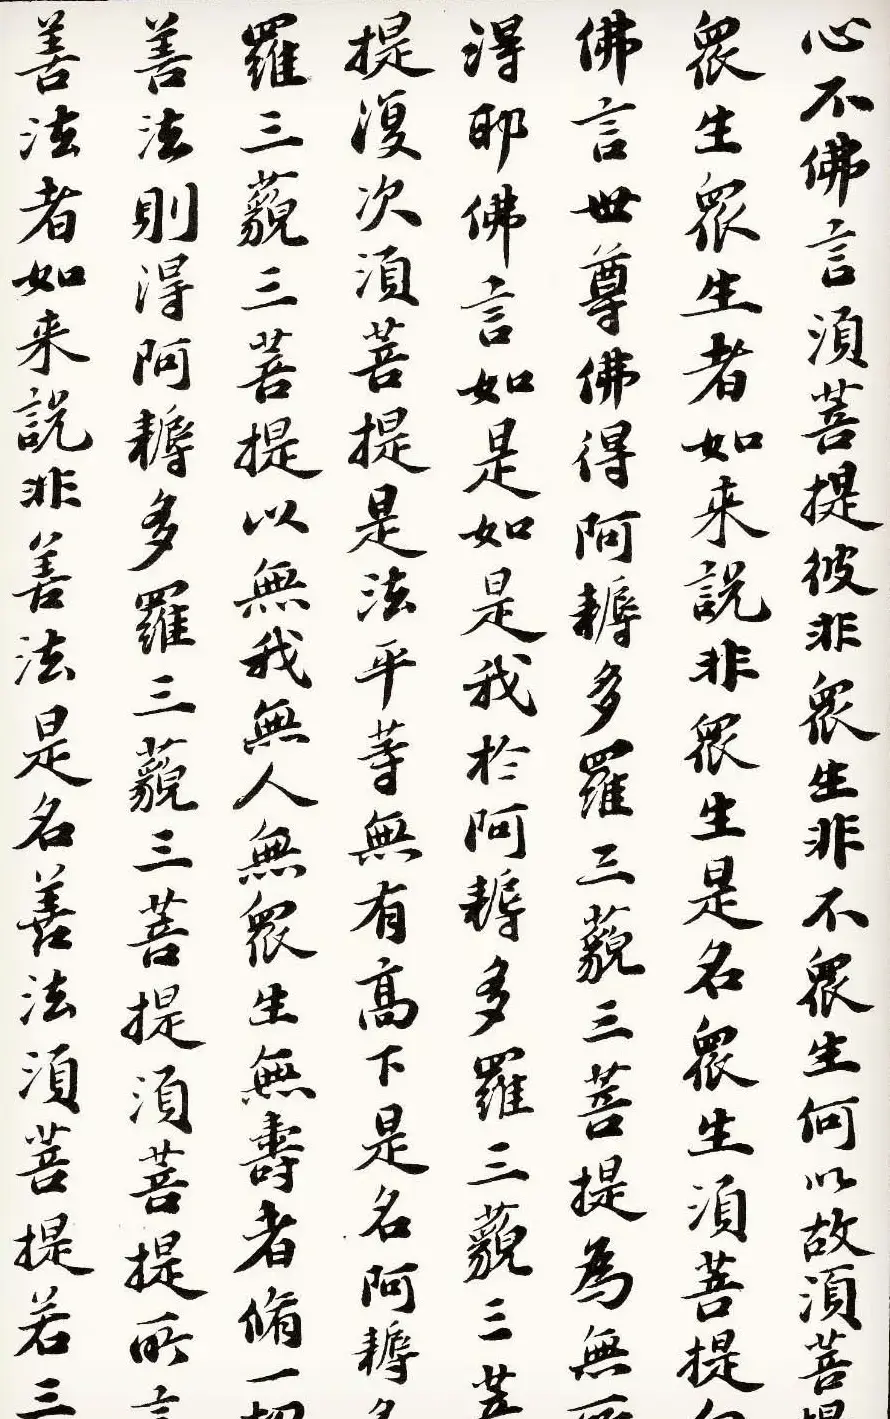 心不佛言須菩提彼非眾生非不眾生何以故須菩提
眾生眾生者如来說非眾生是名眾生須菩提白
佛言世尊佛得阿耨多羅三藐三菩提為無所
得耶佛言如是如是我於阿耨多羅三藐三菩
提復次須菩提是法平等無有高下是名阿耨多
羅三藐三菩提以無我無人無眾生無壽者脩一切
善法則得阿耨多羅三藐三菩提須菩提所言
善法者如来說非善法是名善法須菩提若三